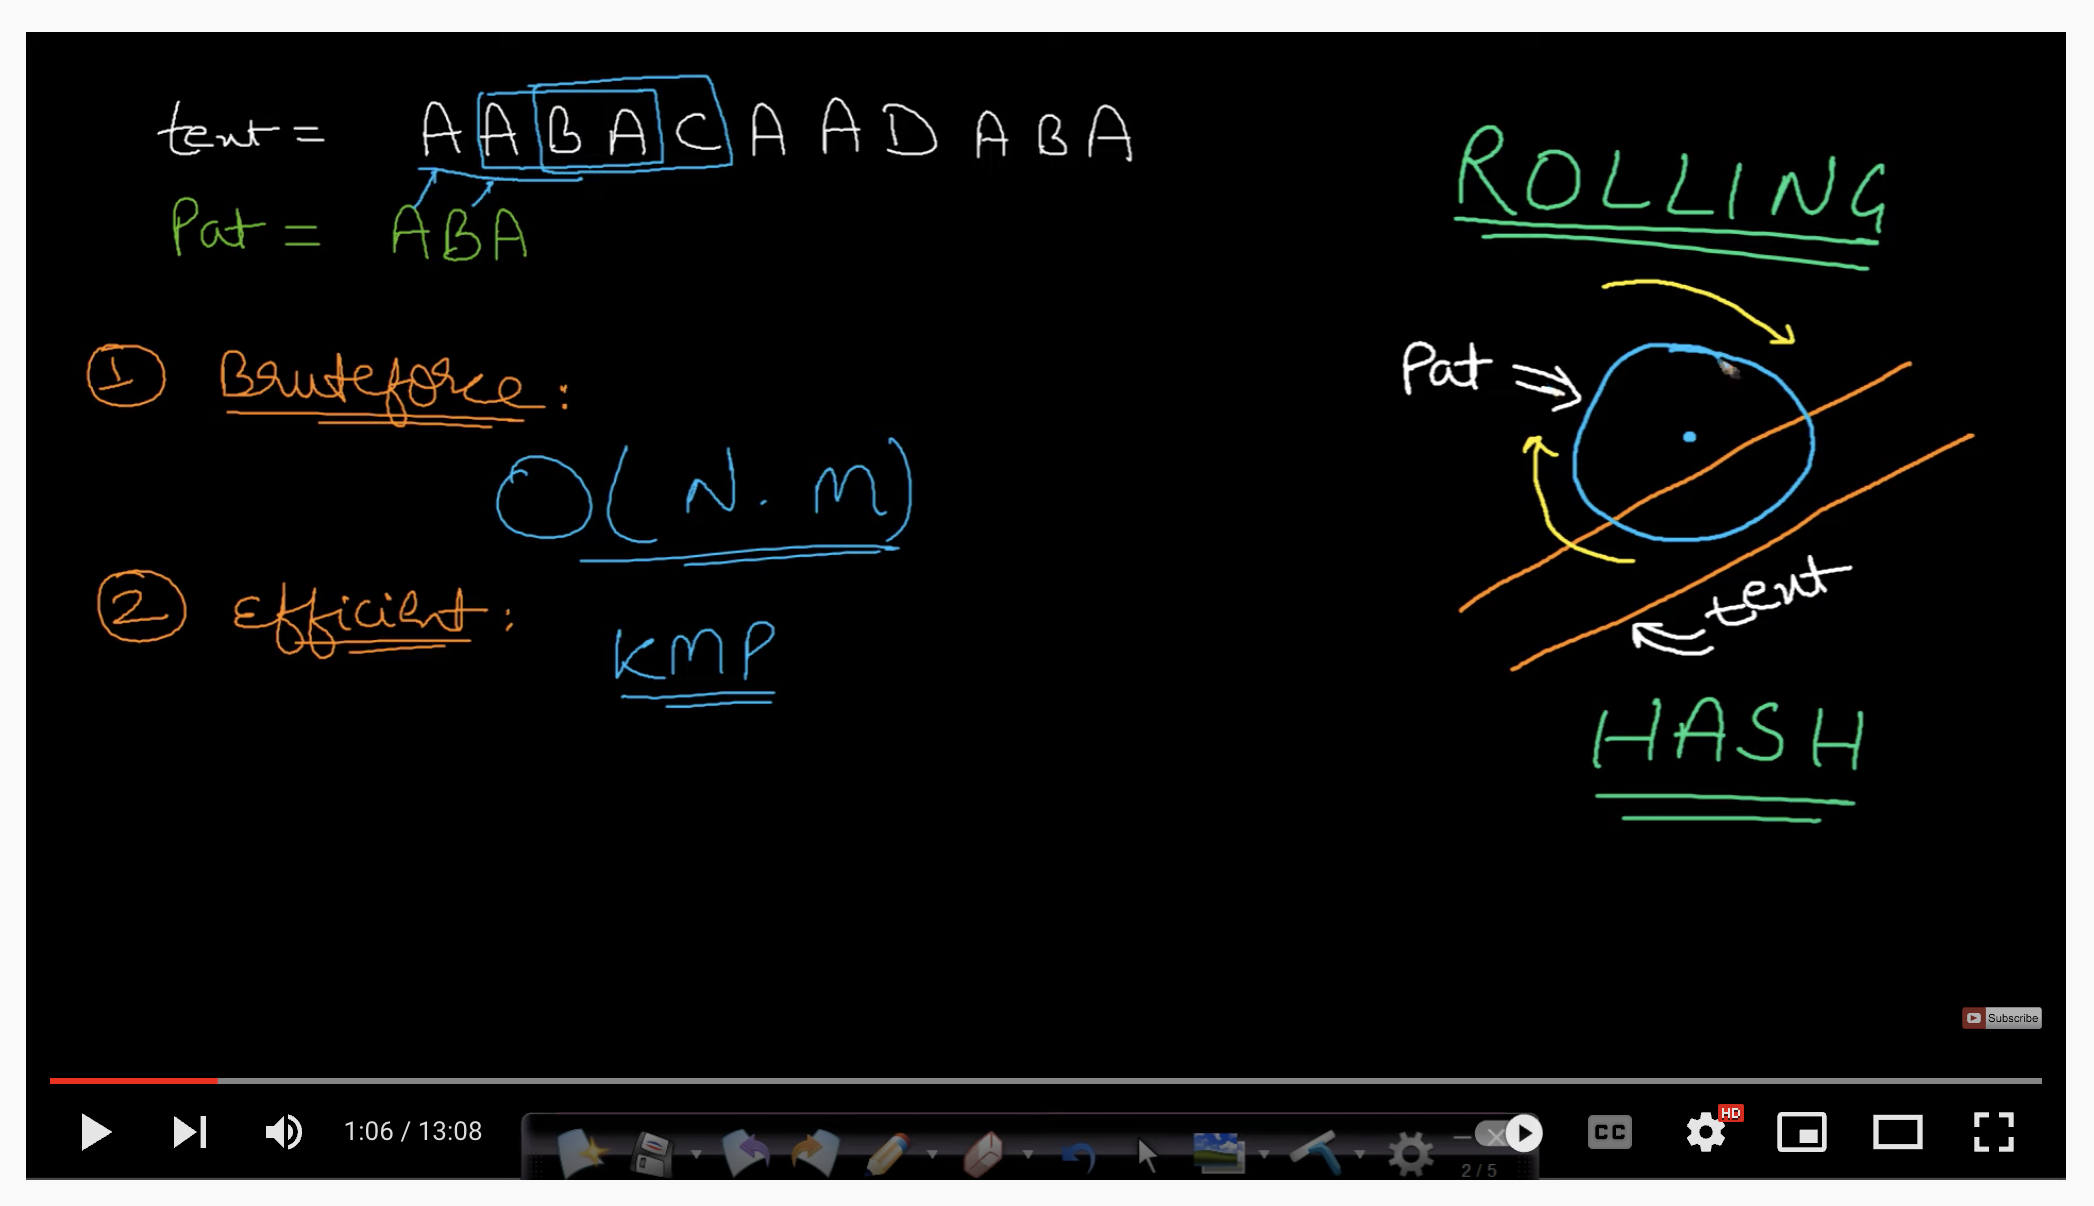 text = A A B A C A A D A B A
Pat = A B A
① Bruteforce :
O(N.M)
② Efficient :
KMP
ROLLING
Pat
text
HASH
Subscribe
1:06 / 13:08
2/5
CC
HD